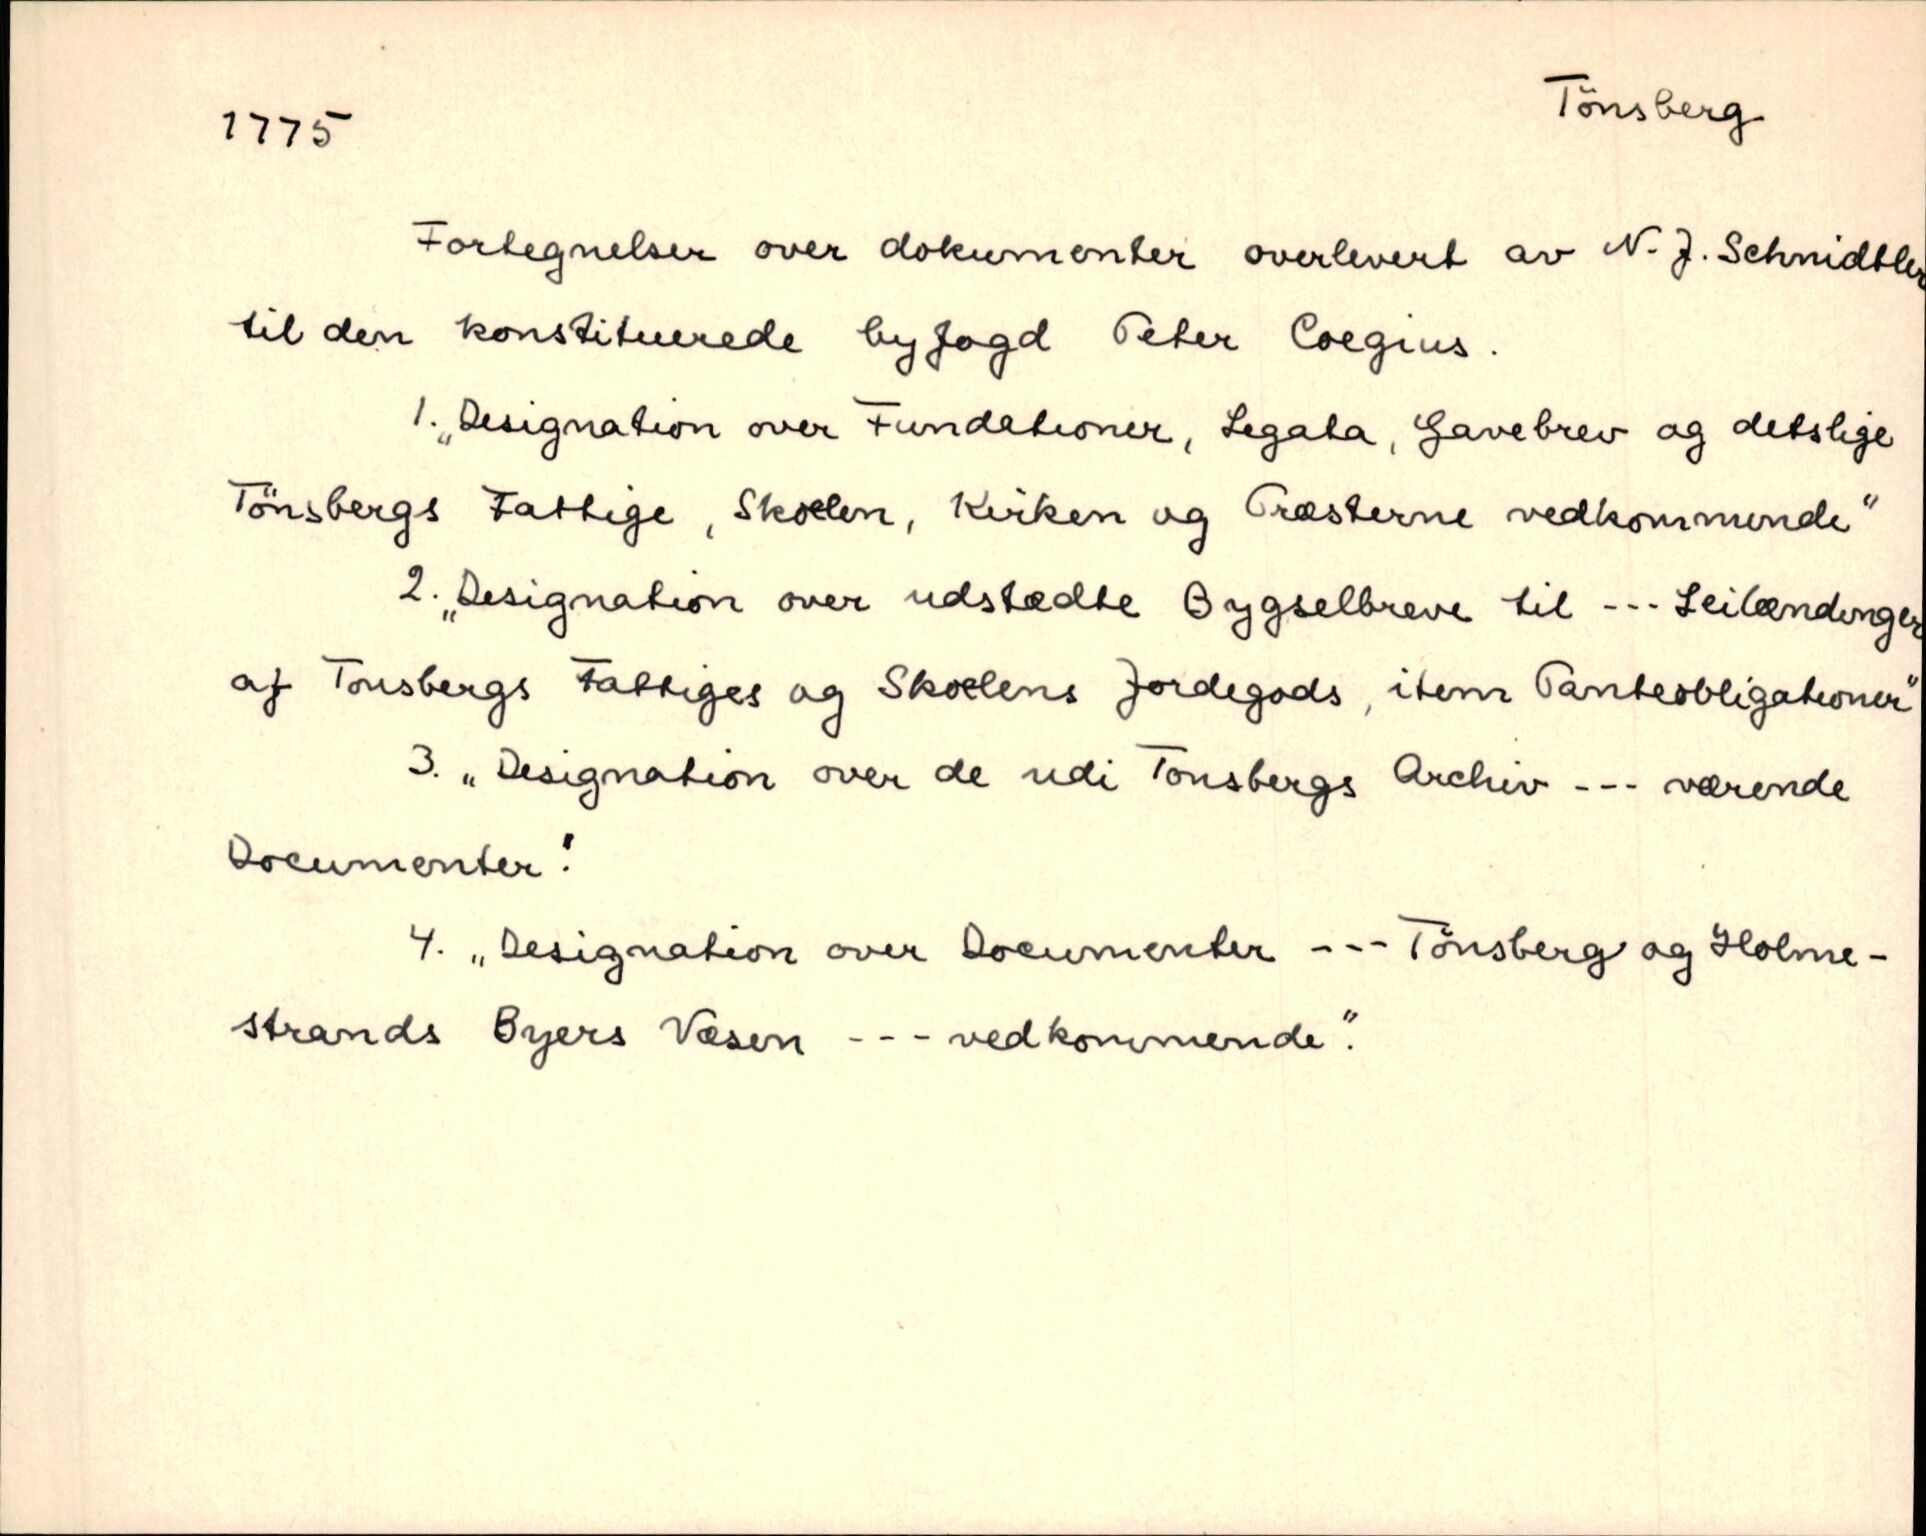 1775
Tönsberg
Fortegnelser over dokumenter overlevert av N. J. Schmidtler
til den konstituerede byfogd Peter Coegius.
1. „Designation over Fundationer, Legata, Gavebrev og detslige
Tönsbergs Fattige, Skoelen, Kirken og Præsterne vedkommende“
2. „Designation over udstædte Bygselbreve til --- Leilændinger
af Tonsbergs Fattiges og Skoelens Jordegods, item Panteobligationer“
3. „Designation over de udi Tonsbergs Archiv --- værende
Documenter“.
4. „Designation over Documenter --- Tönsberg og Holme-
strands Byers Væsen --- vedkommende“.